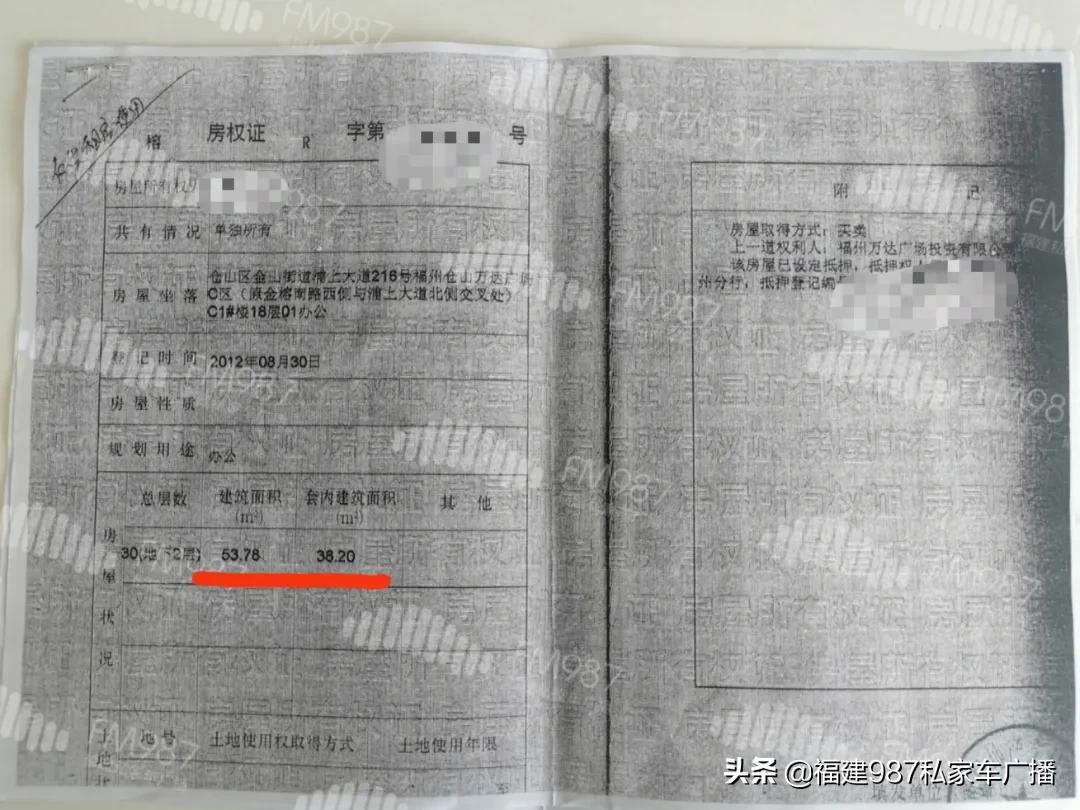 榕 房权证 R 字第 号
房屋所有权人
共有情况 单独所有
房屋坐落 仓山区金山街道浦上大道216号福州仓山万达广场
C区（原金榕南路西侧与浦上大道北侧交叉处）
C1#楼18层01办公
登记时间 2012年08月30日
房屋性质
规划用途 办公
房屋状况
总层数 建筑面积(m²) 套内建筑面积(m²) 其他
30(地下2层) 53.78 38.20
土地
地号 土地使用权取得方式 土地使用年限
至
附 记
房屋取得方式：买卖
上一道权利人：福州万达广场投资有限公司
该房屋已设定抵押，抵押权人
州分行，抵押登记编号
填发单位
FM987
头条 @福建987私家车广播